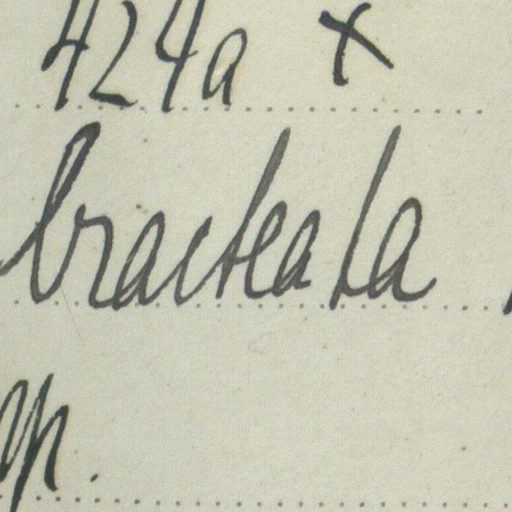 424a ×
bracteata
sp.